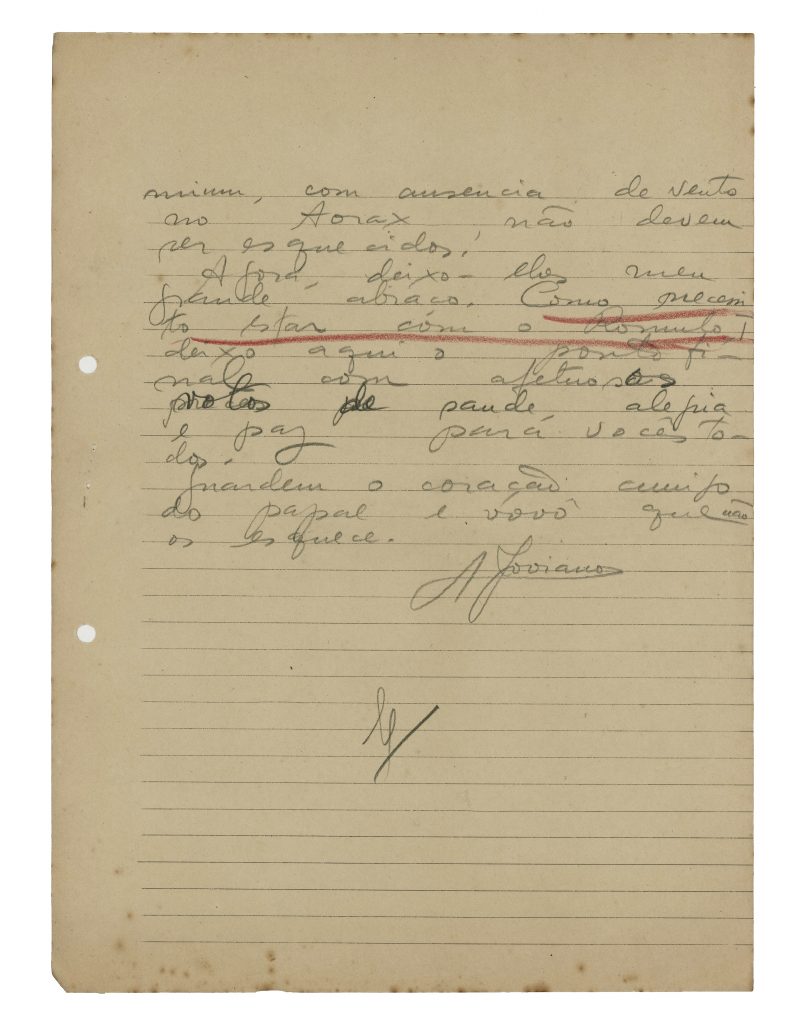 minum, com ausencia de vento
no Aorax não devem
ser esquecidos!
Agora, deixo-lhes meu
grande abraço. Como necessi
to estar com o Romulo,
deixo aqui o ponto fi-
nal com afetuosos
votos de saude, alegria
e paz para vocês to-
dos.
Guardem o coração amigo
do papae e vovô que não
os esquece.
A Joviano